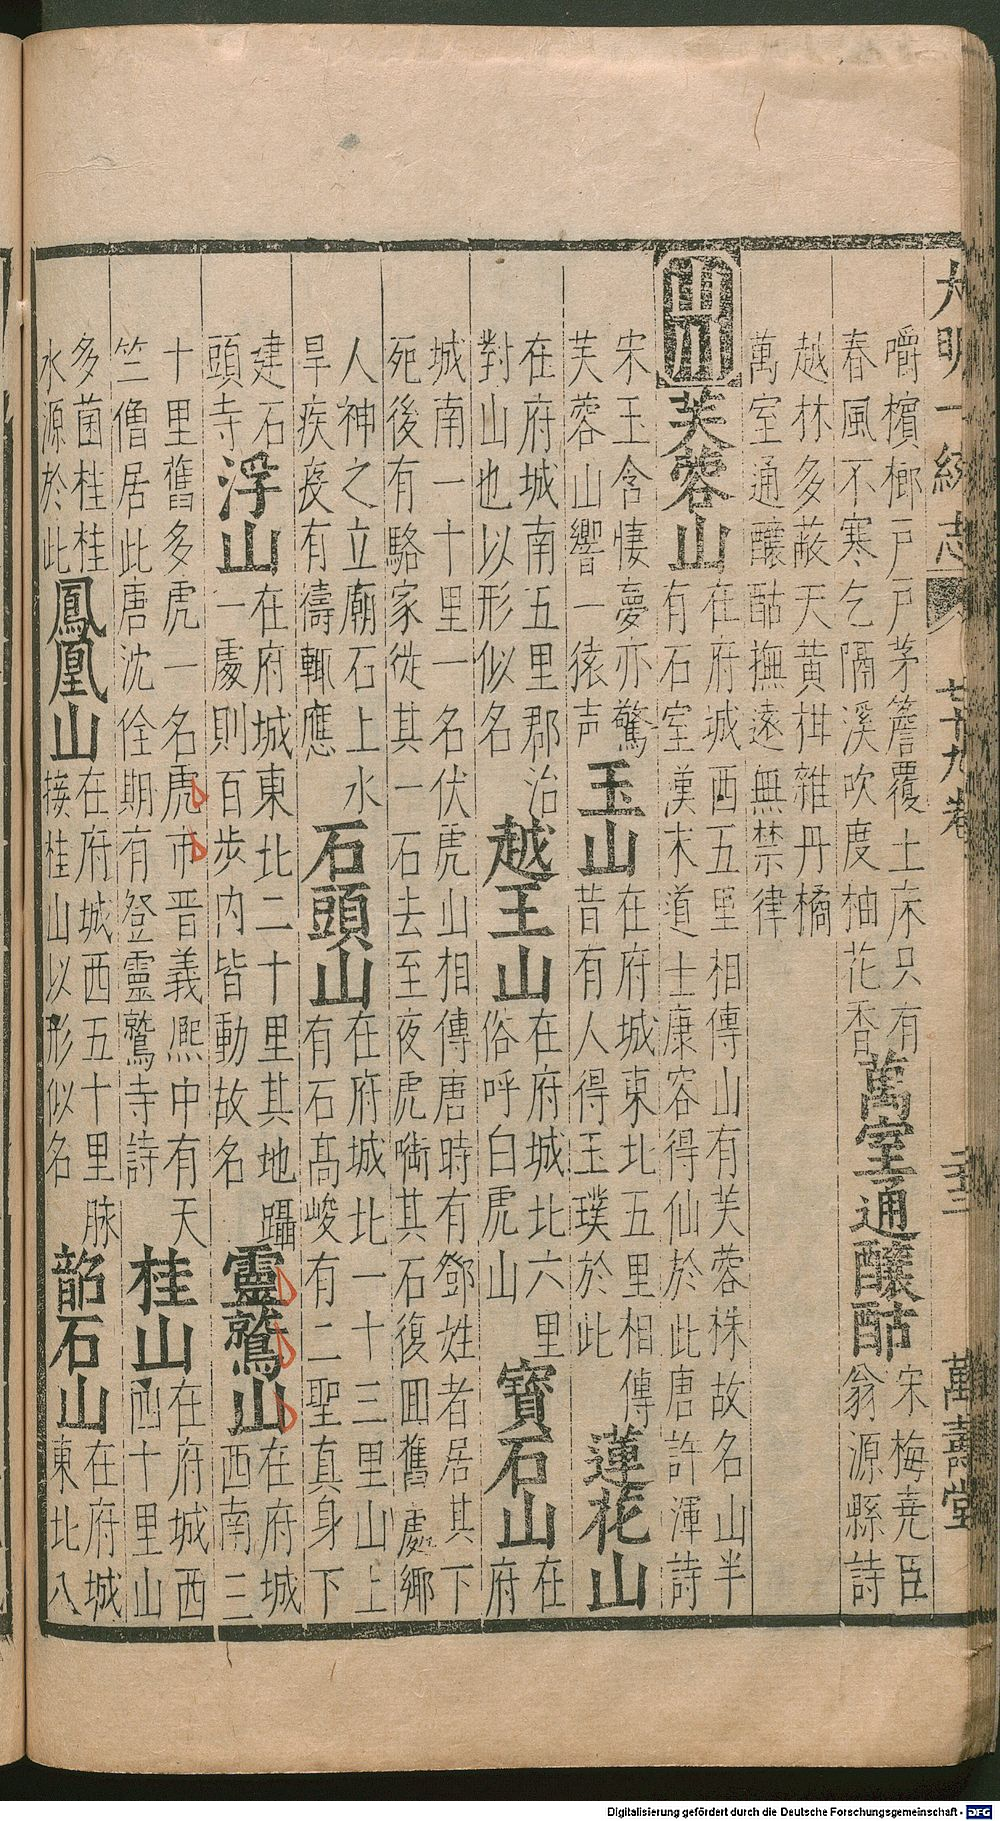 大明一統志 卷七十九 萬壽堂
嚼檳榔戸戸茅簷覆土床只有
春風不寒乞隔溪吹度柚花香
萬室通釀酤
宋梅堯臣
翁源縣詩
越林多蔽天黃柑雜丹橘
萬室通釀酤撫遠無禁律
山川
芙蓉山
在府城西五里相傳山有芙蓉株故名山半
有石室漢末道士康容得仙於此唐許渾詩
宋玉含悽夢亦驚
芙蓉山響一猿声
玉山
在府城東北五里相傳
昔有人得玉璞於此
蓮花山
在府城南五里郡治
對山也以形似名
越王山
在府城北六里
俗呼白虎山
寶石山
在
府
城南一十里一名伏虎山相傳唐時有鄧姓者居其下
死後有駱家徙其一石去至夜虎啮其石復囬舊處鄉
人神之立廟石上水
旱疾疫有禱輒應
石頭山
在府城北一十三里山上
有石高峻有二聖真身下
建石
頭寺
浮山
在府城東北二十里其地躡
一處則百步內皆動故名
靈鷲山
在府城
西南三
十里舊多虎一名虎市晋義熈中有天
竺僧居此唐沈佺期有登靈鷲寺詩
桂山
在府城西
西十里山
多菌桂桂
水源於此
鳳凰山
在府城西五十里脉
接桂山以形似名
韶石山
在府城
東北八
Digitalisierung gefördert durch die Deutsche Forschungsgemeinschaft - DFG